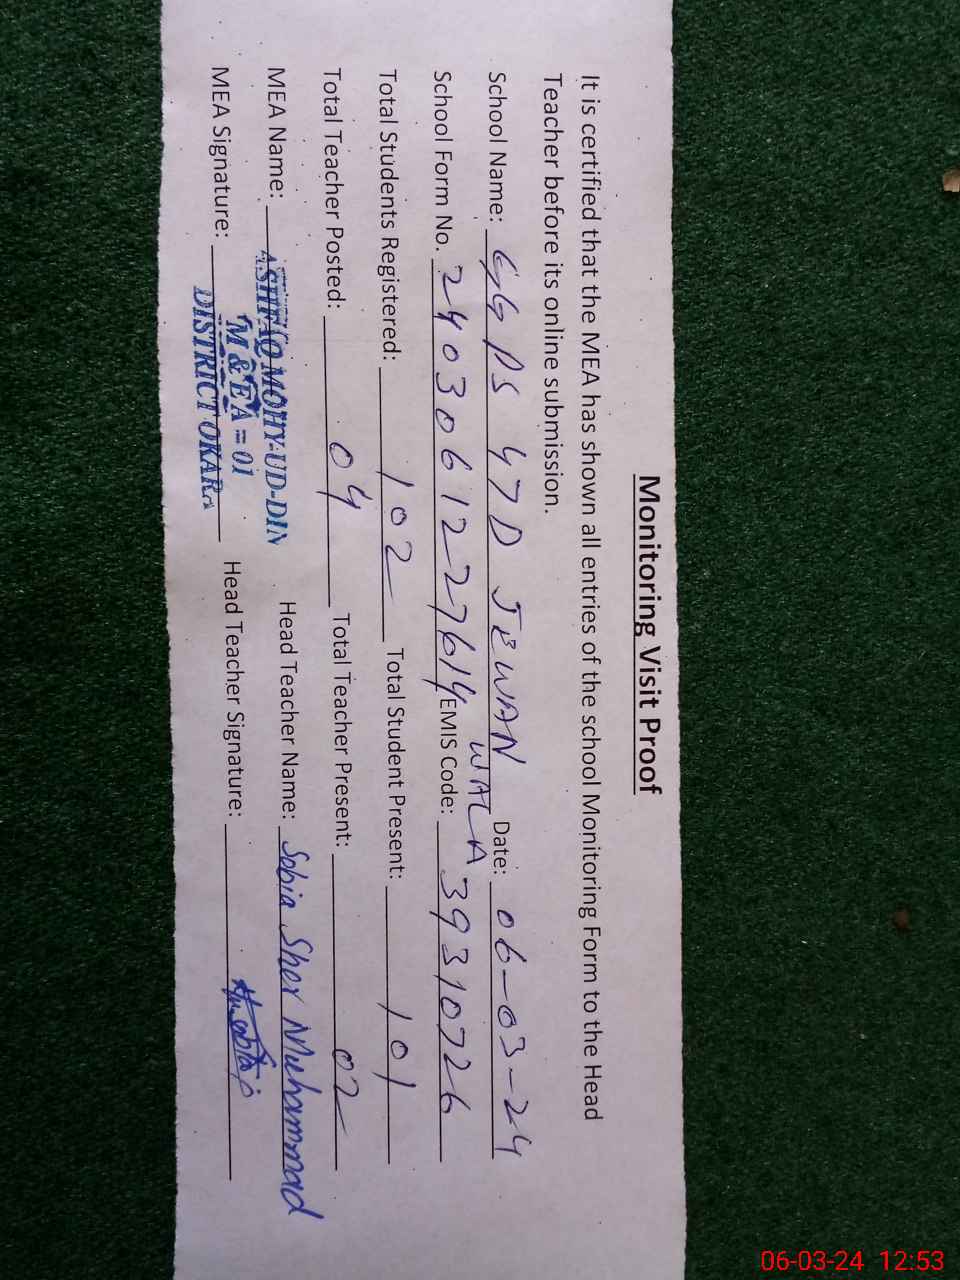 Monitoring Visit Proof
It is certified that the MEA has shown all entries of the school Monitoring Form to the Head
Teacher before its online submission.
School Name: GGPS 47D JEWAN WALA Date: 06-03-24
School Form No. 2403061227614 EMIS Code: 39310726
Total Students Registered: 102 Total Student Present: 101
Total Teacher Posted: 04 Total Teacher Present: 02
MEA Name: ASHFAQ MOHY-UD-DIN Head Teacher Name: Sobia Sher Muhammad
MEA Signature: M & EA = 01 Head Teacher Signature:
DISTRICT OKARA
06-03-24 12:53